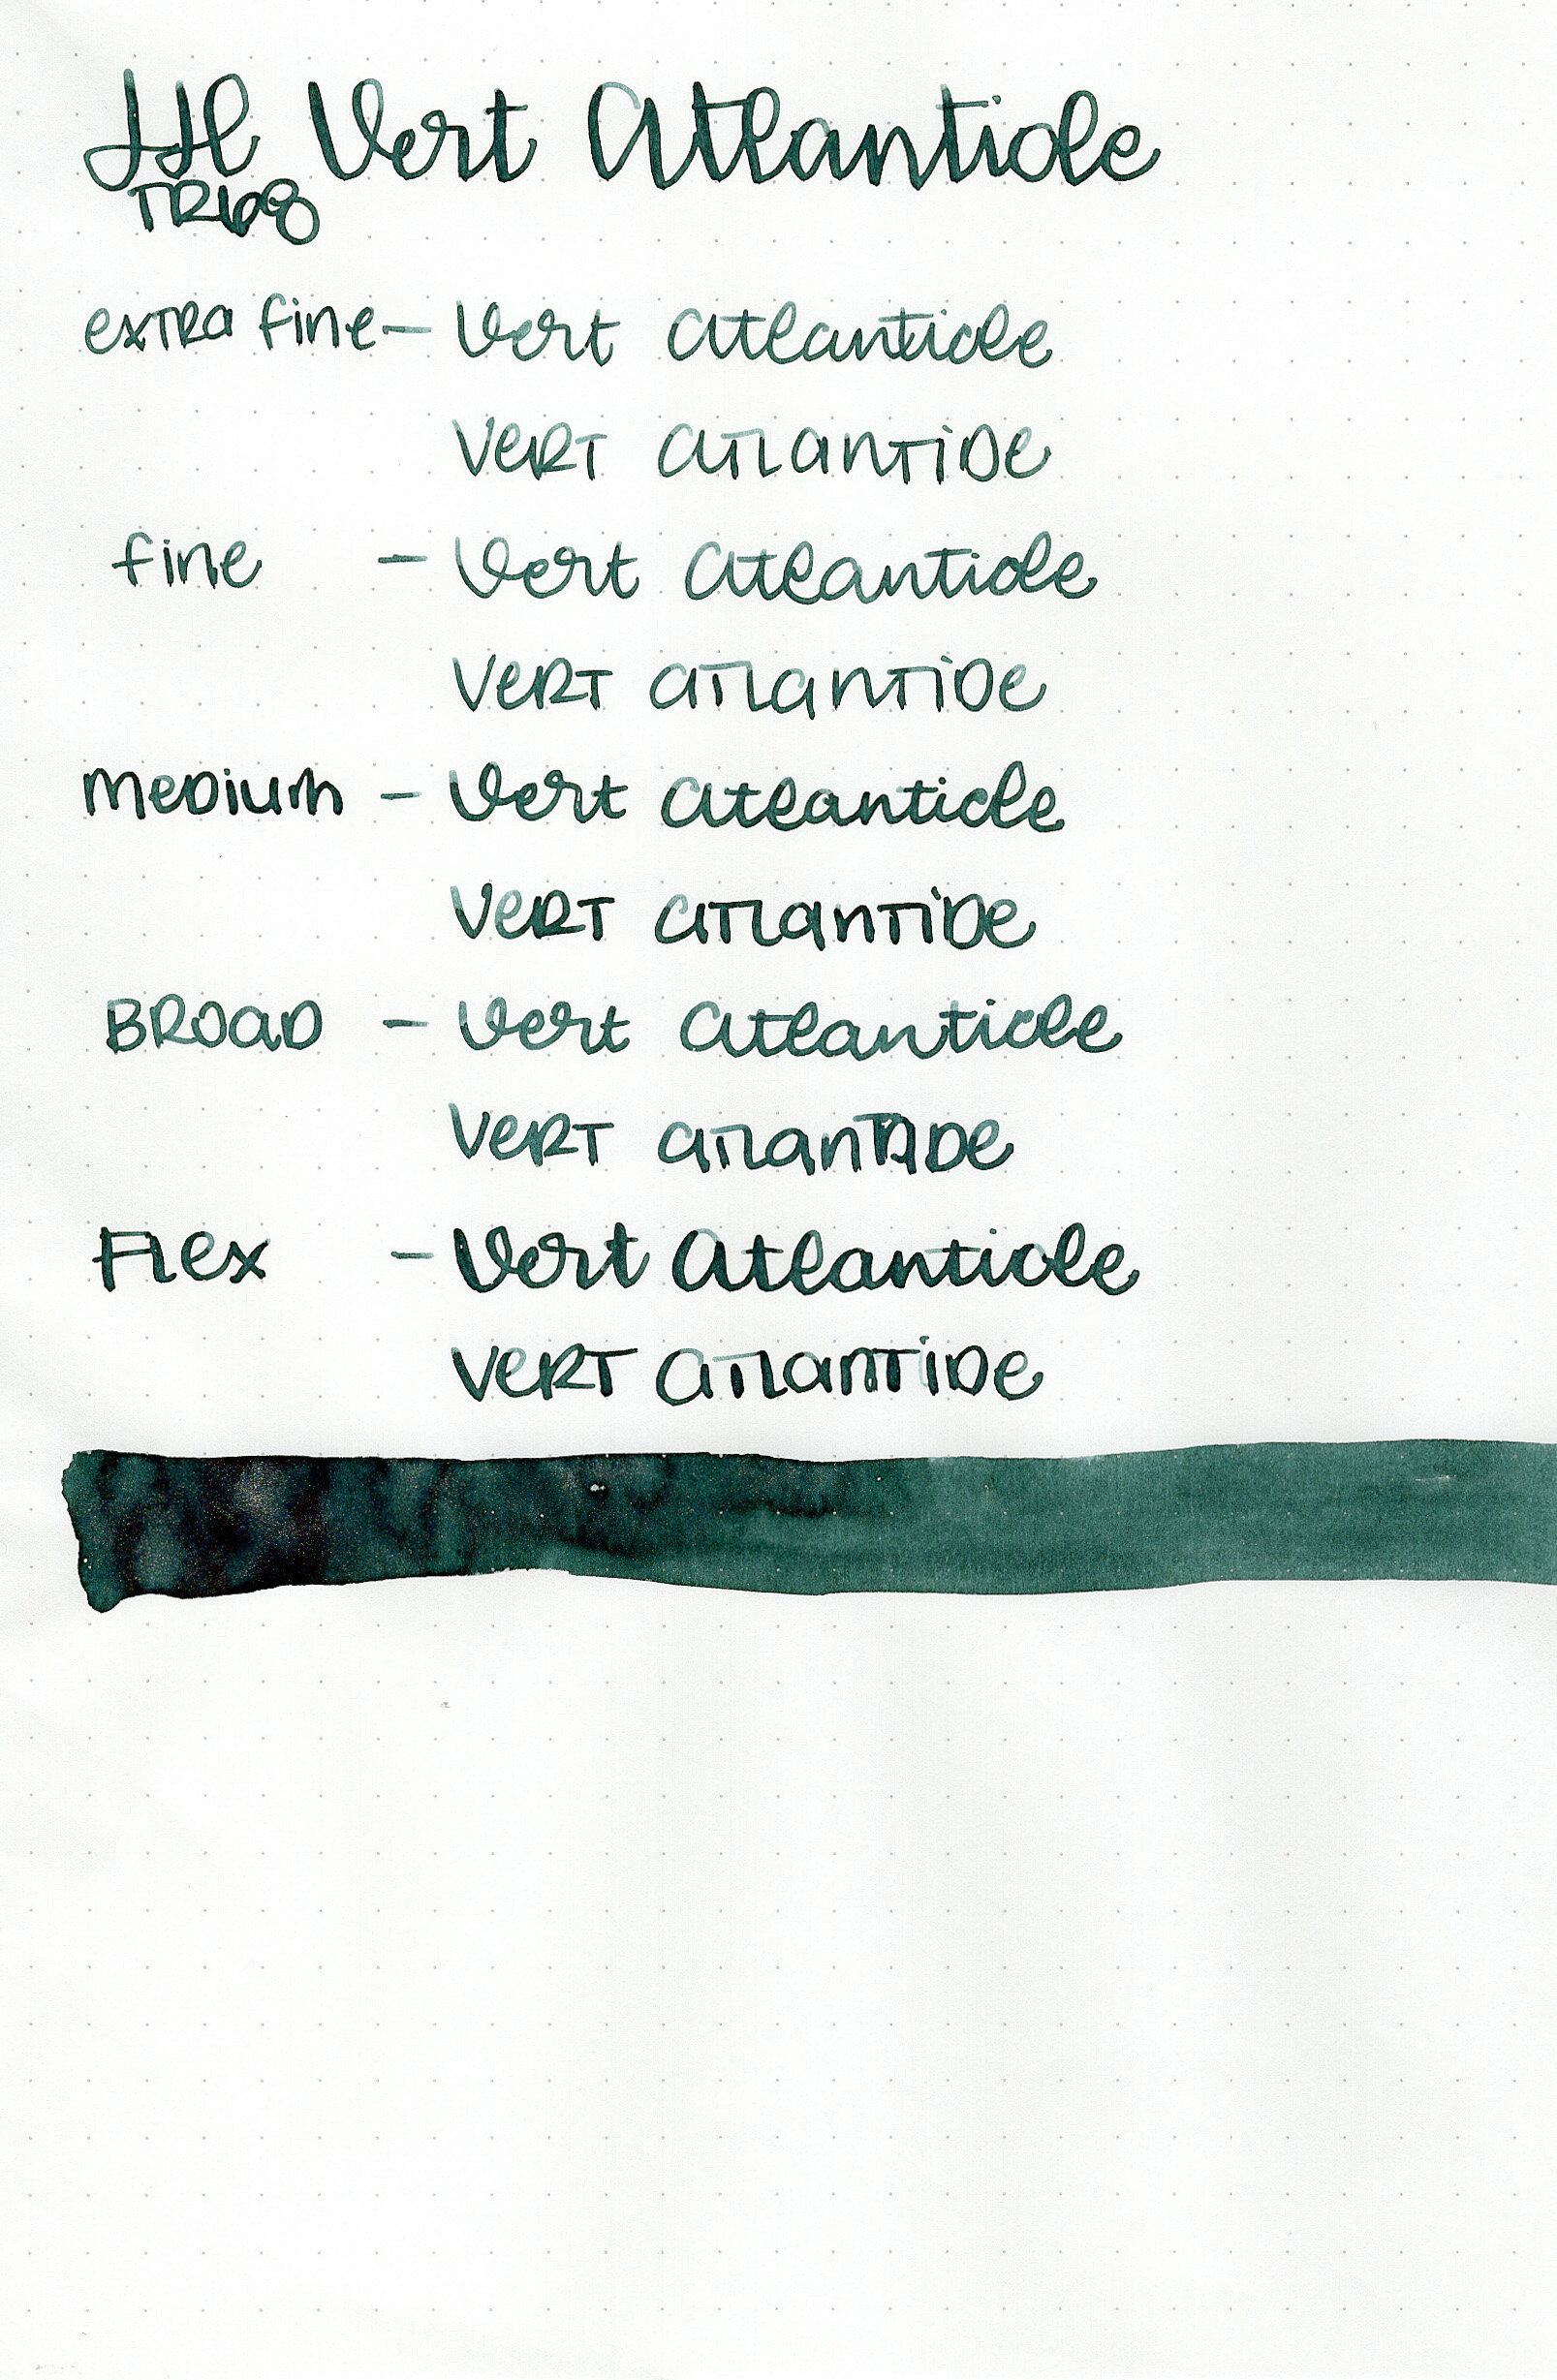 JH Vert Atlantide
TR68
extra fine - Vert Atlantide
Vert Atlantide
fine - Vert Atlantide
Vert Atlantide
Medium - Vert Atlantide
Vert Atlantide
Broad - Vert Atlantide
Vert Atlantide
Flex - Vert Atlantide
Vert Atlantide